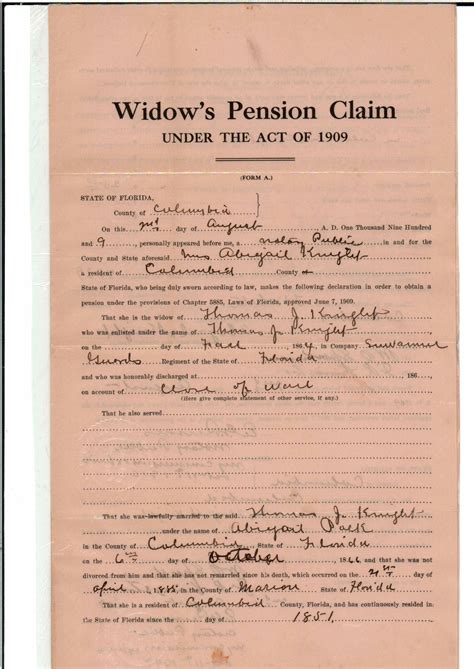 Widow's Pension Claim
UNDER THE ACT OF 1909
(FORM A.)
STATE OF FLORIDA,
County of Columbia
On this 2nd day of August A. D. One Thousand Nine Hundred
and 9, personally appeared before me, a notary Public in and for the
County and State aforesaid Mrs Abigail Knight
a resident of Columbia County &
State of Florida, who being duly sworn according to law, makes the following declaration in order to obtain a
pension under the provisions of Chapter 5885, Laws of Florida, approved June 7, 1909.
That she is the widow of Thomas J. Knight
who was enlisted under the name of Thomas J. Knight
on the day of Fall 186, in Company Suwannee
Guards Regiment of the State of Florida
and who was honorably discharged at 186
on account of Close of
(Here give complete statement of other service, if any)
That he also served
That she was lawfully married to the said Thomas J. Knight
under the name of Abigail
in the County of Columbia State of Florida
on the day of October 1866 and that she was not
divorced from him and that she has not remarried since his death, which occurred on the 21st day of
April 1885 in County of Marion State of Florida
That she is a resident of Columbia County, Florida, and has continuously resided in
the State of Florida since the day of 1851